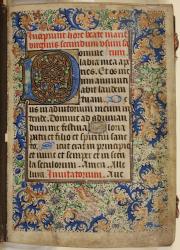 Incipiunt hore beate marie
virginis secundum usum
Domine
labia mea a
pies. Et os m
annunciabit
laudem
tuam.
us in adiutorium meum in
tende. Domine ad adiuuan
dum me festina. Gloria
patri et filio et spiritui sanc
to. Sicut erat in principio
et nunc et semper et in secu
la seculorum. Amen. Alle
luia. Inuitatorium. Aue